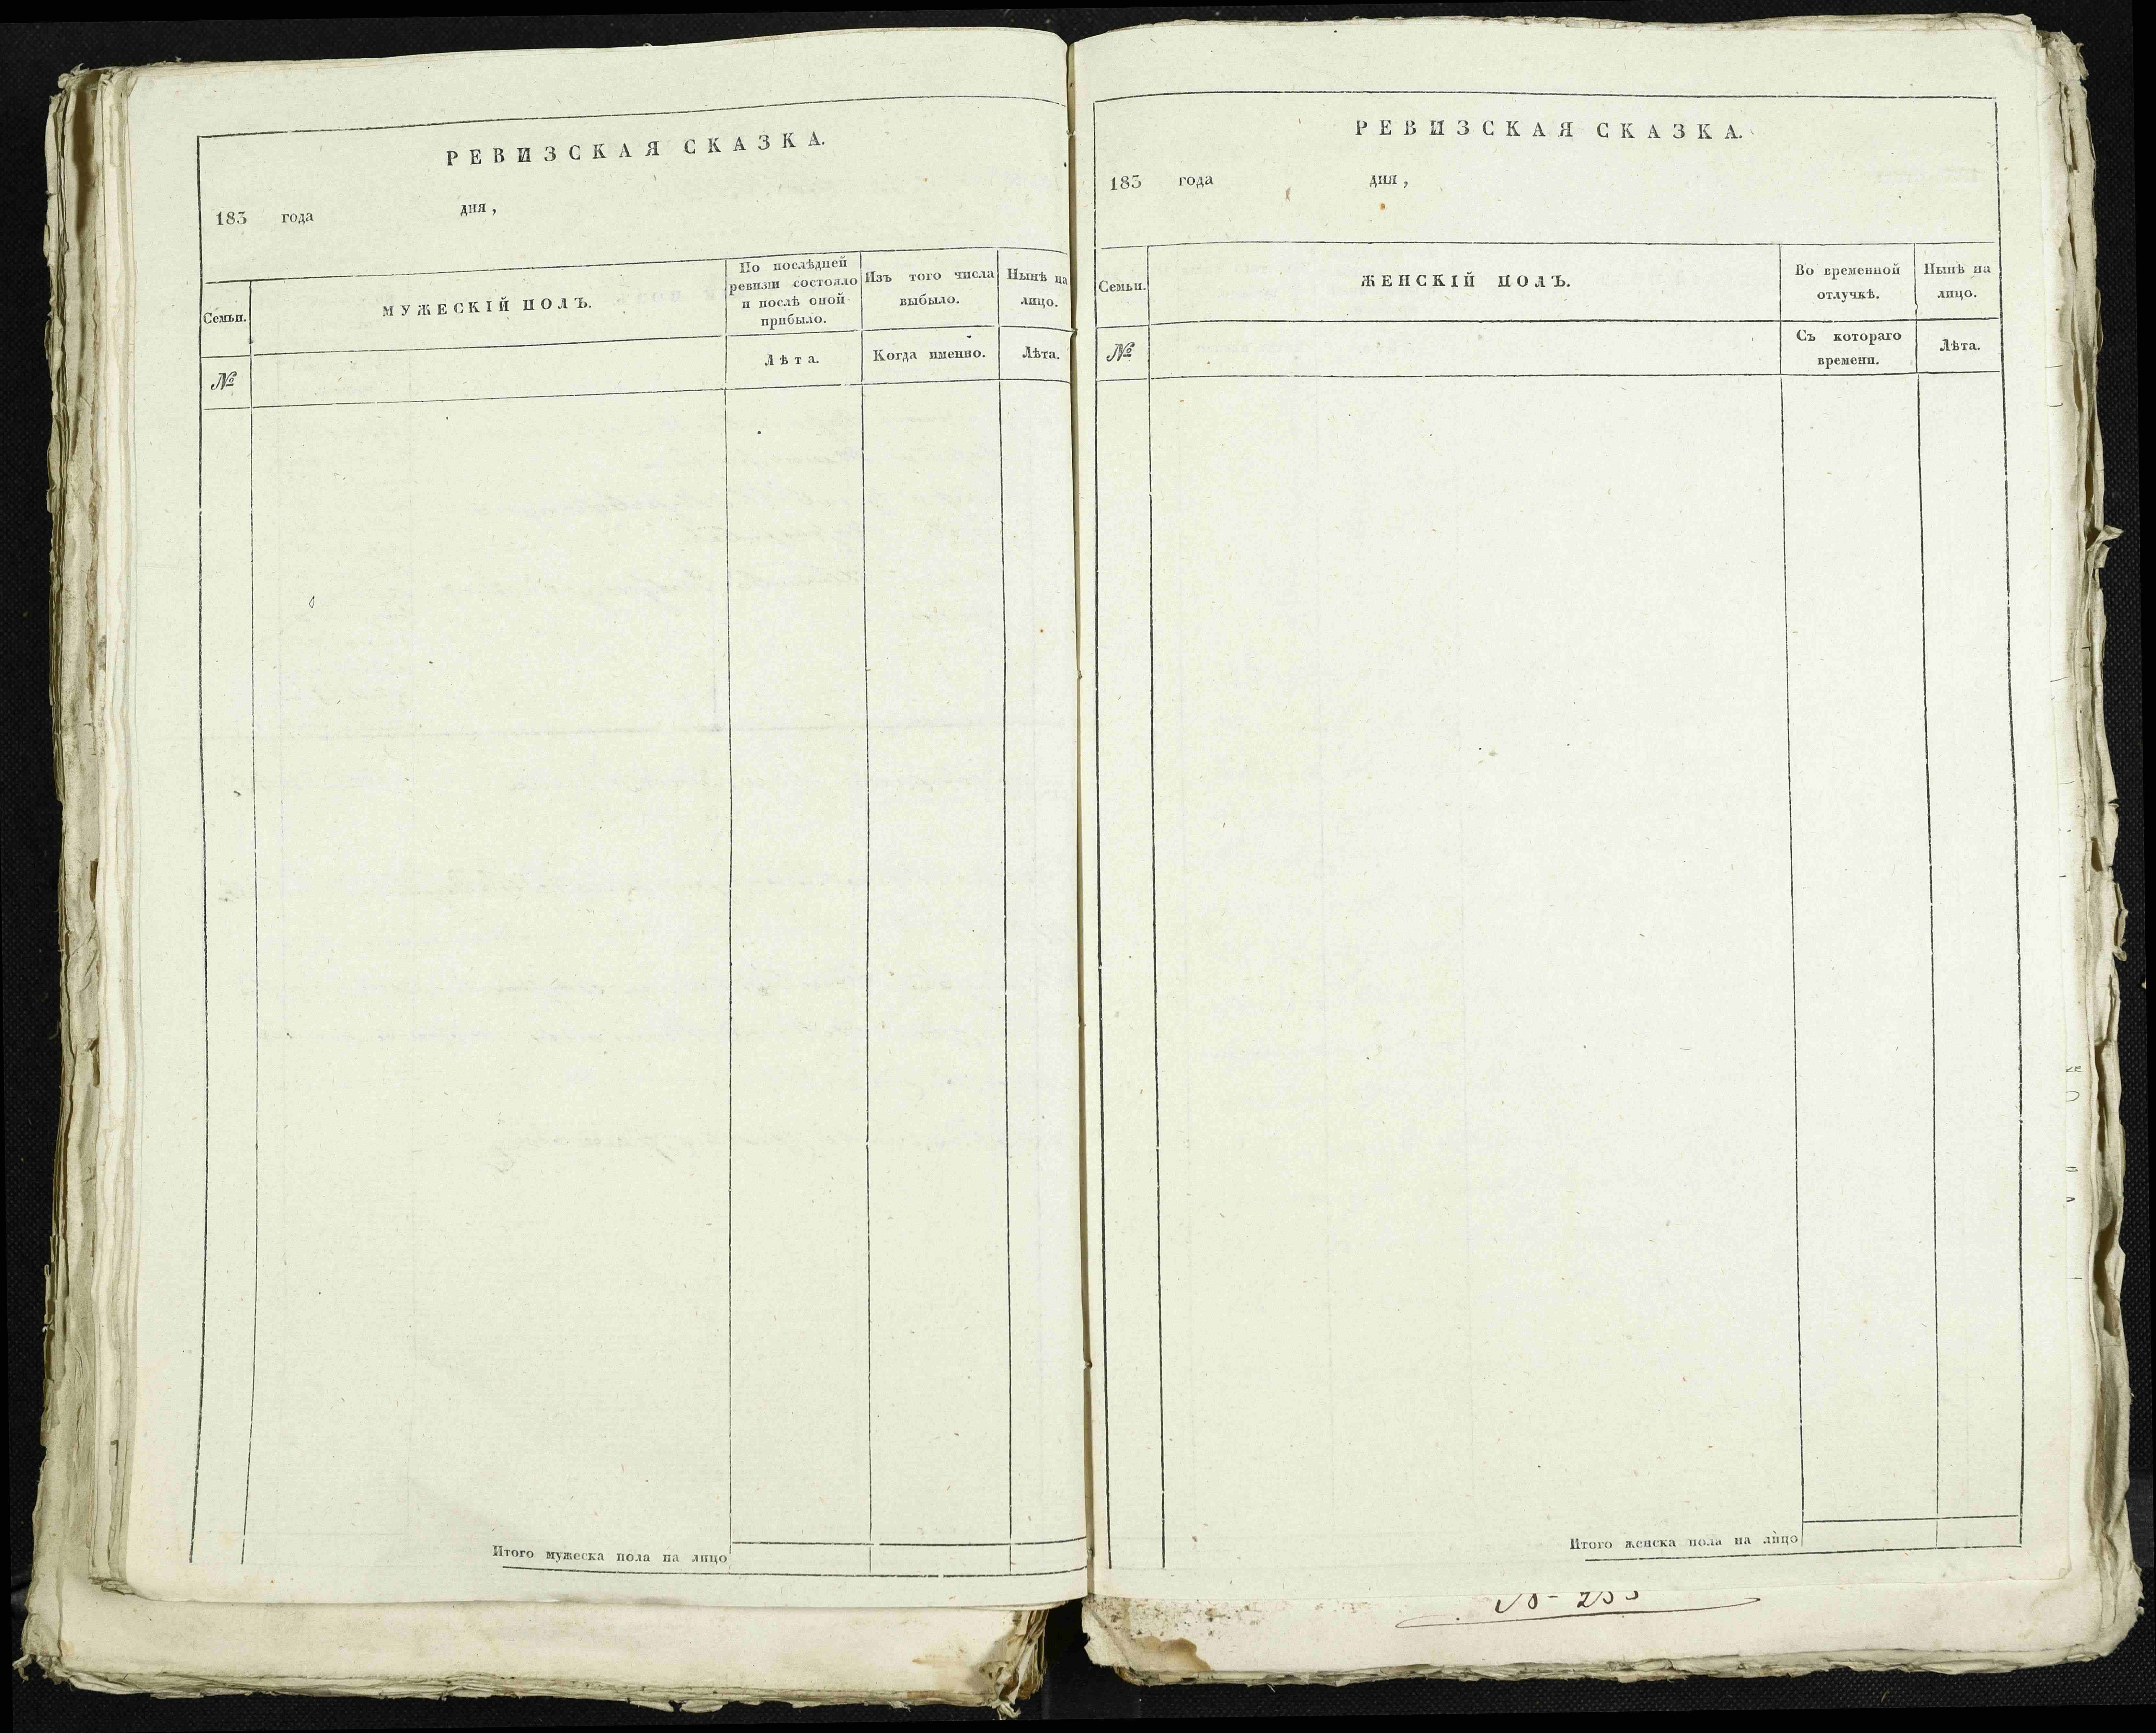 РЕВИЗСКАЯ СКАЗКА.
183 года дня,
Семьи.
МУЖЕСКІЙ ПОЛЪ.
По послѣдней
ревизіи состояло
и послѣ оной
прибыло.
Изъ того числа
выбыло.
Нынѣ на
лицо.
№
Лѣта.
Когда именно.
Лѣта.
Итого мужеска пола на лицо
РЕВИЗСКАЯ СКАЗКА.
183 года дня,
Семьи.
ЖЕНСКІЙ ПОЛЪ.
Во временной
отлучкѣ.
Нынѣ на
лицо.
№
Съ котораго
времени.
Лѣта.
Итого женска пола на лицо